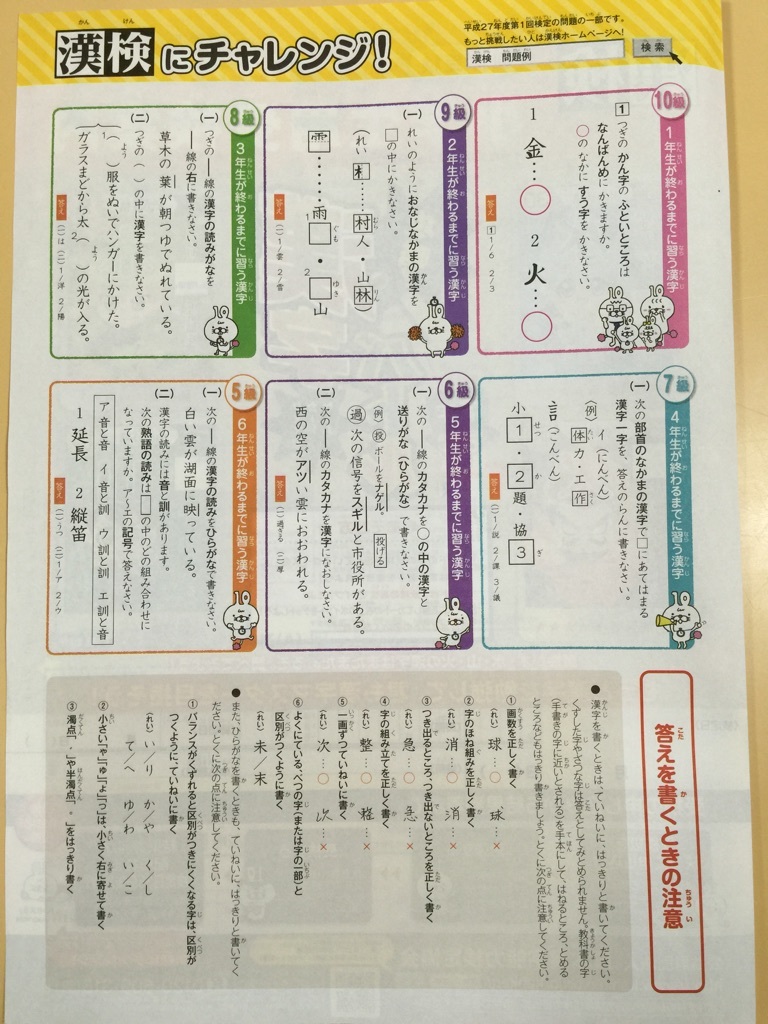 漢検にチャレンジ!
平成27年度第1回検定の問題の一部です。
もっと挑戦したい人は漢検ホームページへ!
漢検 問題例
検索
10級
1年生が終わるまでに習う漢字
1 つぎのかん字のふといところは
なんばんめにかきますか。
○のなかにすう字をかきなさい。
1 金…○
2 火…○
答え 1 1/6 2/3
9級
2年生が終わるまでに習う漢字
(一)
れいのようにおなじなかまの漢字を
□の中にかきなさい。
(れい) 木……村人・山林)
雨……雨1□・2□山
答え (一)1/雲 2/雪
8級
3年生が終わるまでに習う漢字
(一)
つぎの―線の漢字の読みがなを
―線の右に書きなさい。
草木の葉が朝つゆでぬれている。
(二)
つぎの( )の中に漢字を書きなさい。
1( )服をぬいでハンガーにかけた。
ガラスまどから太2( )の光が入る。
答え (一)は (二)1/洋 2/陽
7級
4年生が終わるまでに習う漢字
(一)
次の部首のなかまの漢字で□にあてはまる
漢字一字を、答えのらんに書きなさい。
〈例〉イ(にんべん)
体カ・工作
言(ごんべん)
小1・2題・協3
答え (一)1/説 2/課 3/議
6級
5年生が終わるまでに習う漢字
(一)
次の―線のカタカナを○の中の漢字と
送りがな(ひらがな)で書きなさい。
〈例〉投 ボールをナゲル。 投げる
過 次の信号をスギルと市役所がある。
(二)
次の―線のカタカナを漢字になおしなさい。
西の空がアツい雲におおわれる。
答え (一)過ぎる (二)厚
5級
6年生が終わるまでに習う漢字
(一)
次の―線の漢字の読みをひらがなで書きなさい。
白い雲が湖面に映っている。
(二)
漢字の読みには音と訓があります。
次の熟語の読みは□の中のどの組み合わせに
なっていますか。ア〜エの記号で答えなさい。
ア 音と音 イ 音と訓 ウ 訓と訓 エ 訓と音
1 延長 2 縦笛
答え (一)うつ (二)1/ア 2/ウ
答えを書くときの注意
●漢字を書くときは、ていねいに、はっきりと書いてください。
くずした字やざつな字は答えとしてみとめられません。教科書の字
(手書きの字に近いとされる)を手本にして、はねるところ、とめる
ところなどもはっきり書きましょう。とくに次の点に注意してください。
①画数を正しく書く
(れい) 球…○ 球…×
②字のほね組みを正しく書く
(れい) 消…○ 消…×
③つき出るところ、つき出ないところを正しく書く
(れい) 急…○ 急…×
④字の組み立てを正しく書く
(れい) 整…○ …×
⑤一画ずつていねいに書く
(れい) 次…○ 次…×
⑥よくにている、べつの字(または字の一部)と
区別がつくように書く
(れい) 未/末
●また、ひらがなを書くときも、ていねいに、はっきりと書いてく
ださい。とくに次の点に注意してください。
①バランスがくずれると区別がつきにくくなる字は、区別が
つくように、ていねいに書く
(れい) い/り か/や く/し
て/へ ゆ/わ い/こ
②小さい「ゃ」「ゅ」「ょ」「っ」は、小さく右に寄せて書く
③濁点「゛」や半濁点「゜」をはっきり書く